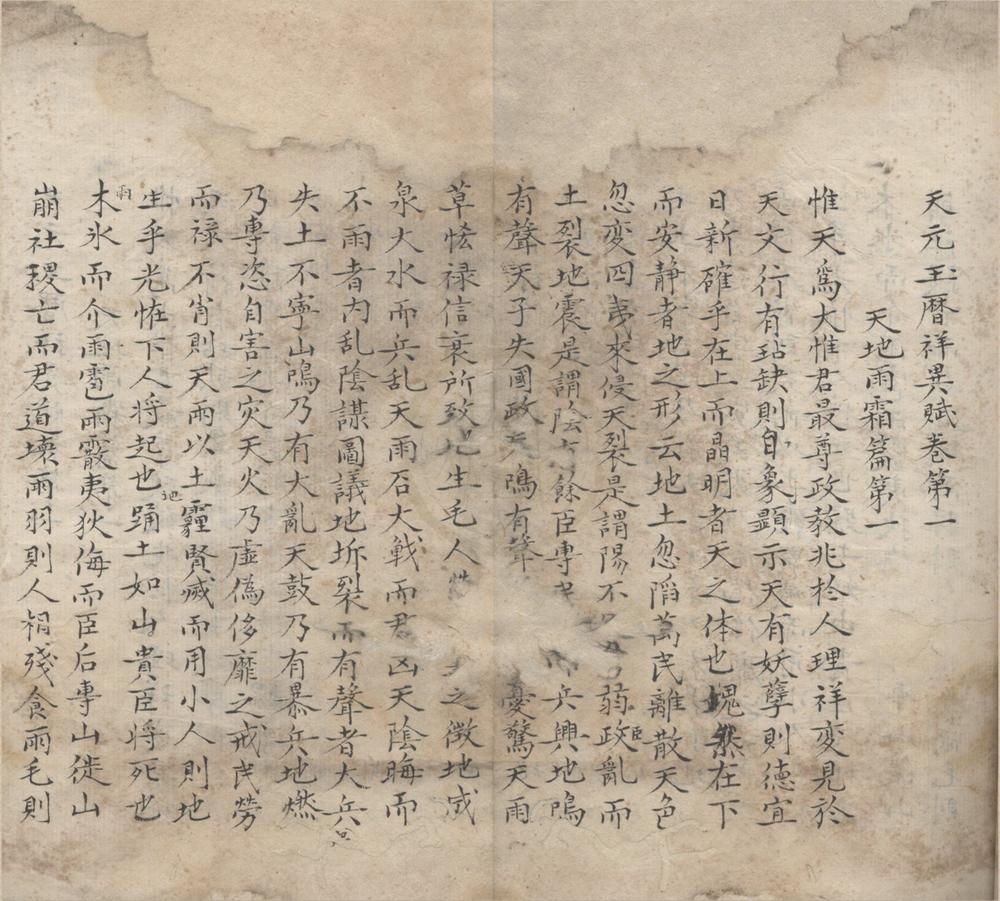 天元玉暦祥異賦卷第一
天地雨霜篇第一
惟天爲大惟君最尊政教兆於人理祥变見於
天文行有玷缺則自象顯示天有妖孽則德宜
日新確乎在上而晶明者天之体也塊然在下
而安静者地之形云地土忽陷萬民離散天色
忽変四夷來侵天裂是謂陽不弱政亂而
土裂地震是謂陰餘臣專兵興地鳴
有聲天子失國政天鳴有聲憂驚天雨
草恠祿信衰所致地生毛人之徴地成
泉大水而兵乱天雨石大戰而君凶天陰晦而
不雨者内乱陰謀圖議地坼裂而有聲者大兵
失土不寧山鳴乃有大亂天鼓乃有暴兵地燃
乃專恣自害之灾天火乃虛偽侈靡之戒民勞
而祿不肖則天雨以土霾賢臧而用小人則地
生乎光恠下人将起也地踊土如山貴臣将死也
雨木氷而介雨雹雨霰夷狄侮而臣后專山徙山
崩社稷亡而君道壞雨羽則人相殘食雨毛則